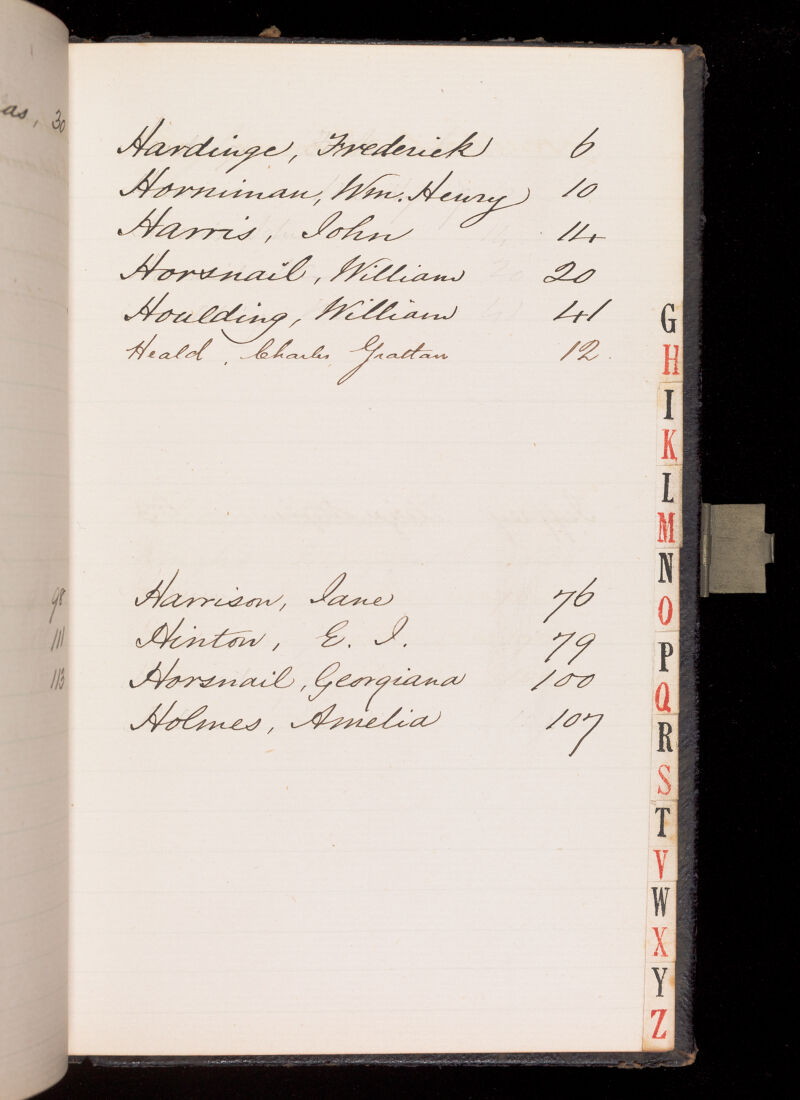 as, 30
Hardinge, Frederick 6
Horniman, Wm. Henry 10
Harris, John 14
Horsnail, William 20
Houlding, William 41
Heald, Charles Grattan 12.
98
111
113
Harrison, Jane 76
Hinton, E. J. 79
Horsnail, Georgiana 100
Holmes, Amelia 107
G
H
I
K
L
M
N
O
P
Q
R
S
T
V
W
X
Y
Z